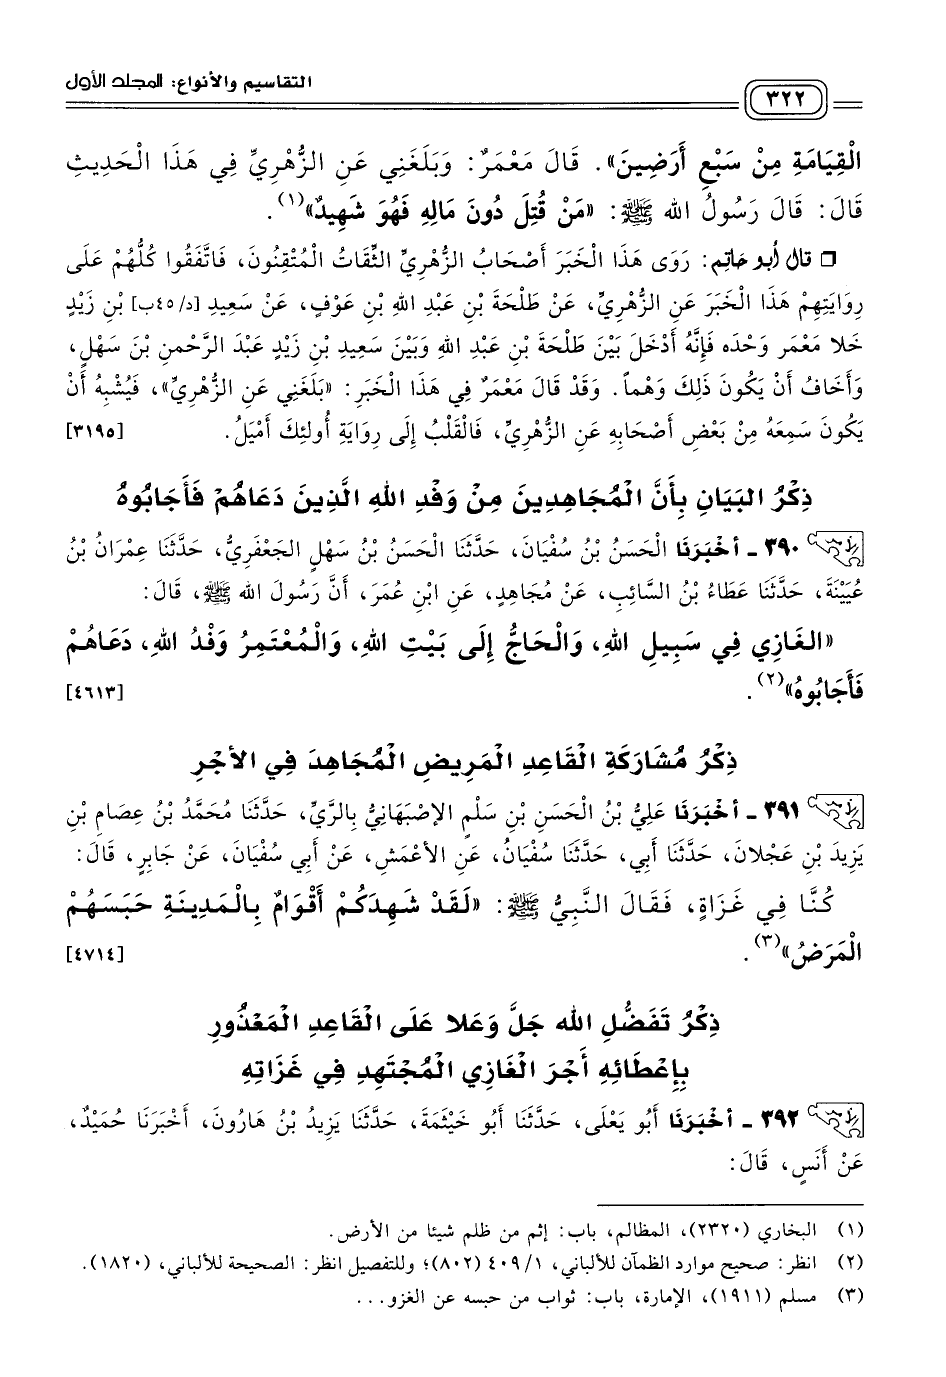 التقاسيم والأنواع: المجلد الأول
٣٢٢
الْقِيَامَةِ مِنْ سَبْعِ أَرَضِينَ». قَالَ مَعْمَرٌ: وَبَلَغَنِي عَنِ الزُّهْرِيِّ فِي هَذَا الْحَدِيثِ
قَالَ: قَالَ رَسُولُ الله ﷺ: «مَنْ قُتِلَ دُونَ مَالِهِ فَهُوَ شَهِيدٌ»(١).
□ قال أبو حاتم: رَوَى هَذَا الْخَبَرَ أَصْحَابُ الزُّهْرِيِّ الثِّقَاتُ الْمُتْقِنُونَ، فَاتَّفَقُوا كُلُّهُمْ عَلَى
رِوَايَتِهِمْ هَذَا الْخَبَرَ عَنِ الزُّهْرِيِّ، عَنْ طَلْحَةَ بْنِ عَبْدِ اللهِ بْنِ عَوْفٍ، عَنْ سَعِيدِ [د/٤٥ب] بْنِ زَيْدٍ
خَلا مَعْمَر وَحْدَه فَإِنَّهُ أَدْخَلَ بَيْنَ طَلْحَةَ بْنِ عَبْدِ اللهِ وَبَيْنَ سَعِيدِ بْنِ زَيْدٍ عَبْدَ الرَّحْمنِ بْنَ سَهْلٍ،
وَأَخَافُ أَنْ يَكُونَ ذَلِكَ وَهْماً. وَقَدْ قَالَ مَعْمَرٌ فِي هَذَا الْخَبَرِ: «بَلَغَنِي عَنِ الزُّهْرِيِّ»، فَيُشْبِهُ أَنْ
يَكُونَ سَمِعَهُ مِنْ بَعْضِ أَصْحَابِهِ عَنِ الزُّهْرِيِّ، فَالْقَلْبُ إِلَى رِوَايَةِ أُولئِكَ أَمْيَلُ. [٣١٩٥]
ذِكْرُ البَيَانِ بِأَنَّ الْمُجَاهِدِينَ مِنْ وَفْدِ اللهِ الَّذِينَ دَعَاهُمْ فَأَجَابُوهُ
٣٩٠ ـ أخْبَرَنَا الْحَسَنُ بْنُ سُفْيَانَ، حَدَّثَنَا الْحَسَنُ بْنُ سَهْلٍ الجَعْفَرِيُّ، حَدَّثَنَا عِمْرَانُ بْنُ
عُيَيْنَةَ، حَدَّثَنَا عَطَاءُ بْنُ السَّائِبِ، عَنْ مُجَاهِدٍ، عَنِ ابْنِ عُمَرَ، أَنَّ رَسُولَ الله ﷺ، قَالَ:
«الغَازِي فِي سَبِيلِ اللهِ، وَالْحَاجُّ إِلَى بَيْتِ اللهِ، وَالْمُعْتَمِرُ وَفْدُ اللهِ، دَعَاهُمْ
فَأَجَابُوهُ»(٢). [٤٦١٣]
ذِكْرُ مُشَارَكَةِ الْقَاعِدِ الْمَرِيضِ الْمُجَاهِدَ فِي الأجْرِ
٣٩١ ـ أخْبَرَنَا عَلِيُّ بْنُ الْحَسَنِ بْنِ سَلْمٍ الإصْبَهَانِيُّ بِالرَّيِّ، حَدَّثَنَا مُحَمَّدُ بْنُ عِصَامِ بْنِ
يَزِيدَ بْنِ عَجْلانَ، حَدَّثَنَا أَبِي، حَدَّثَنَا سُفْيَانُ، عَنِ الأعْمَشِ، عَنْ أَبِي سُفْيَانَ، عَنْ جَابِرٍ، قَالَ:
كُنَّا فِي غَزَاةٍ، فَقَالَ النَّبِيُّ ﷺ: «لَقَدْ شَهِدَكُمْ أَقْوَامٌ بِالْمَدِينَةِ حَبَسَهُمْ
الْمَرَضُ»(٣). [٤٧١٤]
ذِكْرُ تَفَضُّلِ الله جَلَّ وَعَلا عَلَى الْقَاعِدِ الْمَعْذُورِ
بِإِعْطَائِهِ أَجْرَ الْغَازِي الْمُجْتَهِدِ فِي غَزَاتِهِ
٣٩٢ ـ أخْبَرَنَا أَبُو يَعْلَى، حَدَّثَنَا أَبُو خَيْثَمَةَ، حَدَّثَنَا يَزِيدُ بْنُ هَارُونَ، أَخْبَرَنَا حُمَيْدٌ،
عَنْ أَنَسٍ، قَالَ:
(١) البخاري (٢٣٢٠)، المظالم، باب: إثم من ظلم شيئا من الأرض.
(٢) انظر: صحيح موارد الظمآن للألباني، ٤٠٩/١ (٨٠٢)؛ وللتفصيل انظر: الصحيحة للألباني، (١٨٢٠).
(٣) مسلم (١٩١١)، الإمارة، باب: ثواب من حبسه عن الغزو...